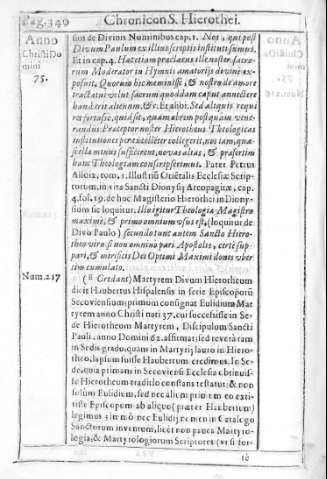 Pag. 340 Chronicon S. Hierothei.
Anno
Christi Do
mini
75.
sius de Divinis Nominibus cap. 1. Nos qui post
Divum Paulum ex illius scriptis instituti sumus.
Et in cap. 4. Hæc etiam præclarus ille noster sacro-
rum Moderator in Hymnis amatorijs divinè ex-
posuit. Quorum hic meminisse, & nostro de amore
tractatui velut sacrum quoddam caput annectere
haud erit alienum, &c. Et alibi. Sed aliquis requi
ret fortasse, quid sit, quam ob rem postquam vene-
randus Præceptor noster Hierotheus Theologicas
institutiones
nos, tam, qua-
si illa minus sufficerent, novas alias, & præsertim
hanc Theologiam conscripserimus. Pater Petrus
Alloix, tom. 1. Illustriũ Oriẽtalis Ecclesiæ Scrip-
torum, in vita Sancti Dionysij Areopagitæ, cap.
4. fol. 59. de hoc Magisterio Hierothei in Diony-
sium sic loquitur. Illu igitur Theologiæ Magistro
maximè, & primo omnium usus est, (loquitur de
Divo Paulo) secundo tunc autem Sancto Hiero-
theo viro si non omninò pari Apostolis, certè sup-
pari, & mirificis Dei Optimi Maximi donis uber
tim cumulato.
Num. 217
(& Credant) Martyrem Divum Hierotheum
dicit Haubertus Hispalensis in serie Episcoporũ
Secoviensium; primum consignat Eulidium Mar
tyrem anno Christi nati 37. cui successisse in Se-
de Hierotheum Martyrem, Discipulum Sancti
Pauli, anno Domini 62. affirmat; sed reverà tam
in Sedis gradu, quam in Martyrij lauro in Hiero-
theo, lapsum fuisse Haubertum credimus. In Se-
de, quia primam in Secoviensi Ecclesia obtinuis-
se Hierotheum traditio constans testatur; & non
solum Eulidium, sed nec alium primum eo exti-
tisse Episcopem ab aliquo (præter Haubertum)
legimus: Imò nec Eulidij nomen in Catalogo
Sanctorum invenitur, licèt non pauca Martyro-
logia, & Martyrologiorum Scriptores (ut si for-
te